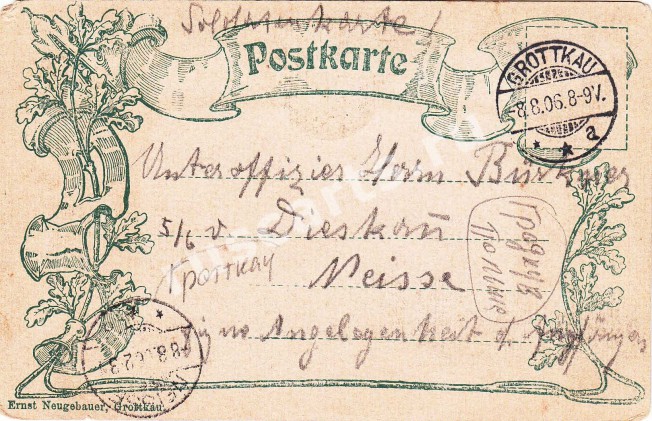 Soldatenkarte!
Postkarte
GROTTKAU
8.8.06.8-9V.
a
Unteroffizier Herrn
5/6 v. Dieskau
Гротткау
Neisse
Гродкув
Польша
Eigne Angelegenheit d. Empfängers
8.8.06.
Ernst Neugebauer, Grottkau.